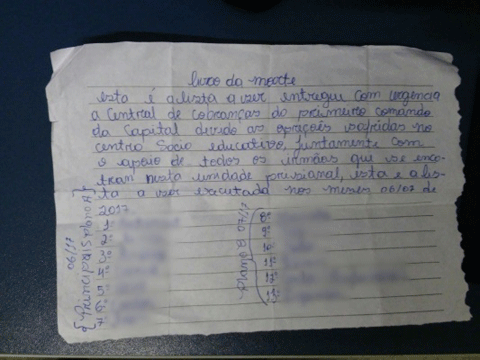 livro da morte
esta é a lista a ser entregue com urgência
a Central de cobranças do primeiro comando
da Capital devido as opreções sofridas no
centro Socio educativo, juntamente com
o apoio de todos os irmãos que se enco
tran nesta unidade prisional, esta e a lis
ta a ser executada nos meses 06/07 de
2017
06/17
Principais
1º
2º
3º
4º
5º
6º
7º
Plano B 07/17
8º
9º
10º
11º
12º
13º